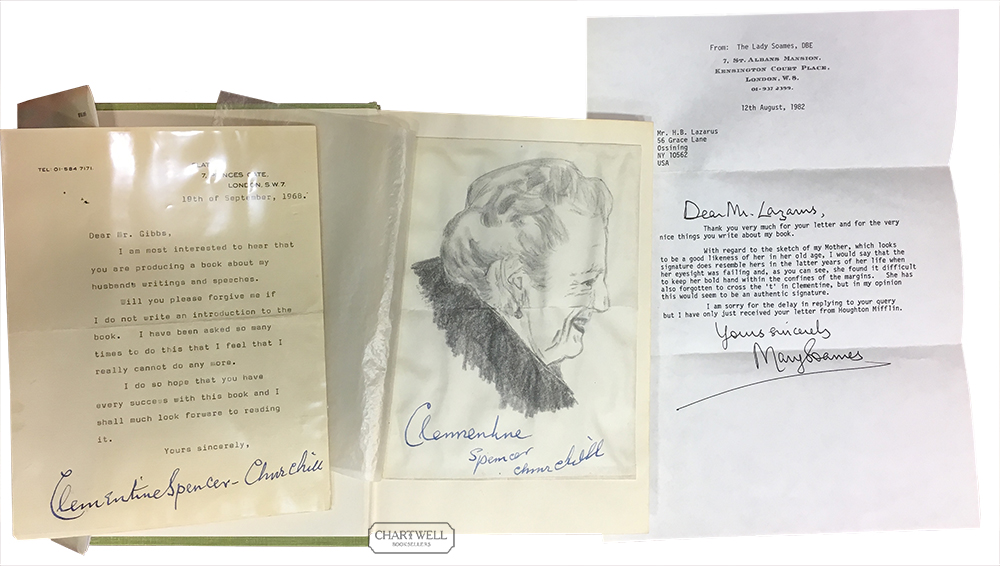 TEL: 01-584 7171.
7, PRINCES GATE,
LONDON, S.W.7.
19th of September, 1968.
Dear Mr. Gibbs,
I am most interested to hear that
you are producing a book about my
husbands writings and speeches.
Will you please forgive me if
I do not write an introduction to the
book. I have been asked so many
times to do this that I feel that I
really cannot do any more.
I do so hope that you have
every success with this book and I
shall much look forward to reading
it.
Yours sincerely,
Clementine Spencer-Churchill
Clementine
Spencer
Churchill
CHARTWELL
BOOKSELLERS
From: The Lady Soames, DBE
7, ST. ALBANS MANSION,
KENSINGTON COURT PLACE,
LONDON, W.8.
01-937 2399.
12th August, 1982
Mr. H.B. Lazarus
56 Grace Lane
Ossining
NY 10562
USA
Dear Mr. Lazarus,
Thank you very much for your letter and for the very
nice things you write about my book.
With regard to the sketch of my Mother, which looks
to be a good likeness of her in her old age, I would say that the
signature does resemble hers in the latter years of her life when
her eyesight was failing and, as you can see, she found it difficult
to keep her bold hand within the confines of the margins. She has
also forgotten to cross the 't' in Clementine, but in my opinion
this would seem to be an authentic signature.
I am sorry for the delay in replying to your query
but I have only just received your letter from Houghton Mifflin.
Yours sincerely
Mary Soames